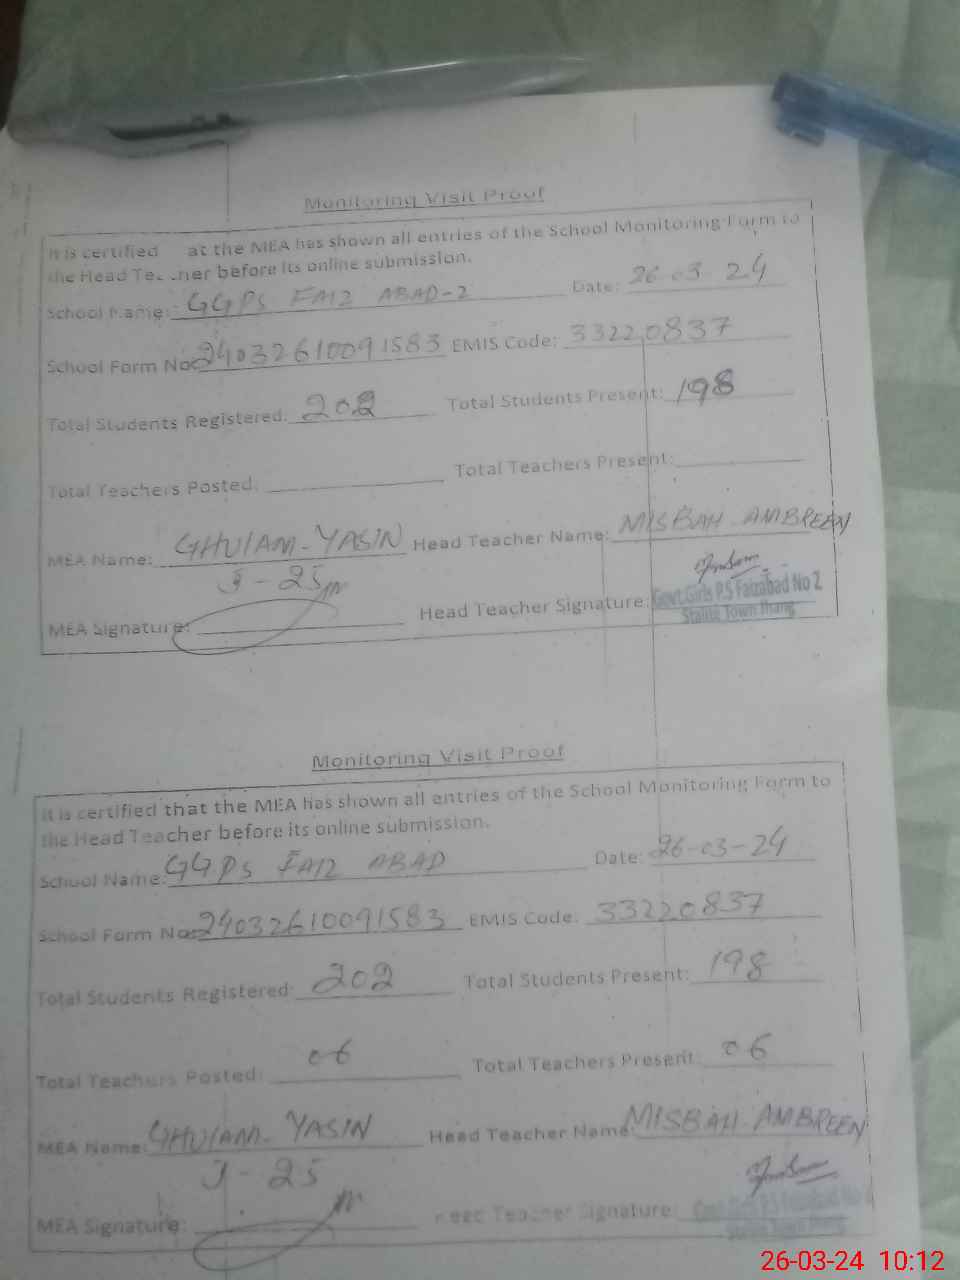 Monitoring Visit Proof
It is certified at the MEA has shown all entries of the School Monitoring Form to
the Head Te cher before its online submission.
School Name: GGPS FAIZ ABAD-2 Date: 26-03-24
School Form No: 24032610091583 EMIS Code: 33220837
Total Students Registered: 202 Total Students Present: 198
Total Teachers Posted: Total Teachers Present:
MEA Name: GHULAM-YASIN Head Teacher Name: MISBAH AMBREEN
J-25
MEA Signature: Head Teacher Signature: Govt.Girls P.S Faizabad No 2
Town Jhang
Monitoring Visit Proof
It is certified that the MEA has shown all entries of the School Monitoring Form to
the Head Teacher before its online submission.
School Name: GGPS FAIZ ABAD Date: 26-03-24
School Form No: 24032610091583 EMIS Code: 33220837
Total Students Registered: 202 Total Students Present: 198
Total Teachers Posted: 06 Total Teachers Present: 06
MEA Name: GHULAM-YASIN Head Teacher Name: MISBAH AMBREEN
J-25
MEA Signature: Head Teacher Signature: Govt.Girls P.S Faizabad No 2
Town Jhang
26-03-24 10:12